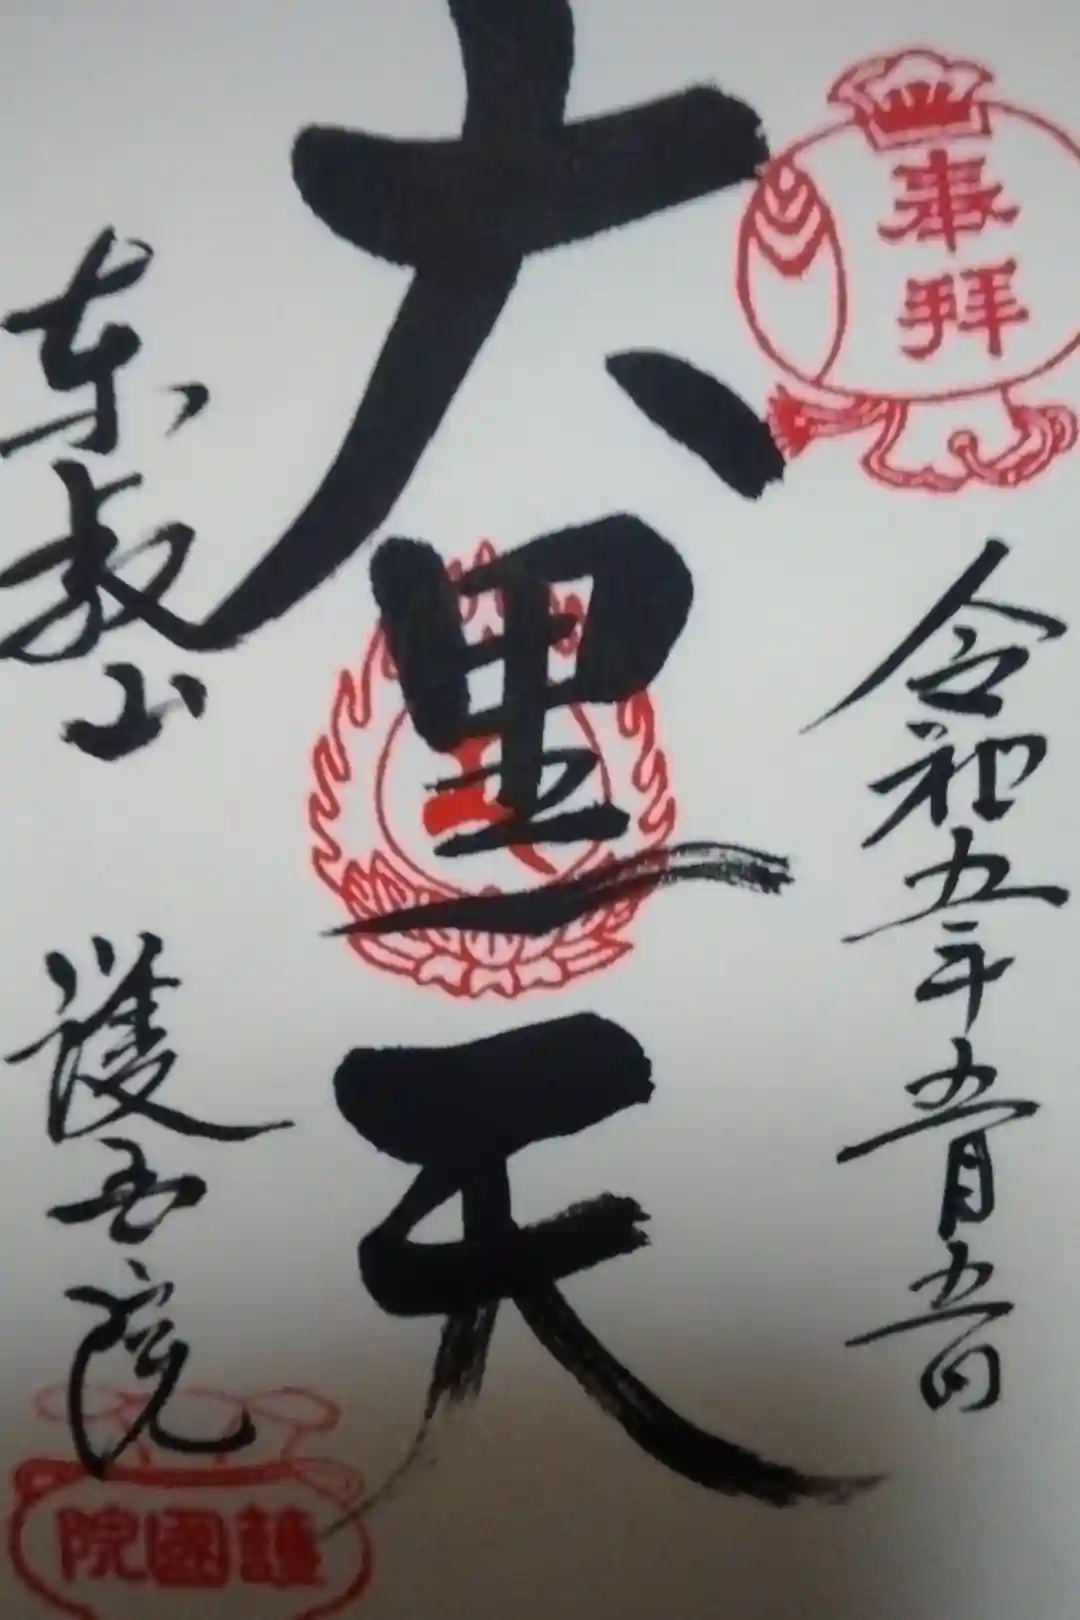 奉拝
令和五年五月五日
大黒天
東叡山 護国院
護國院